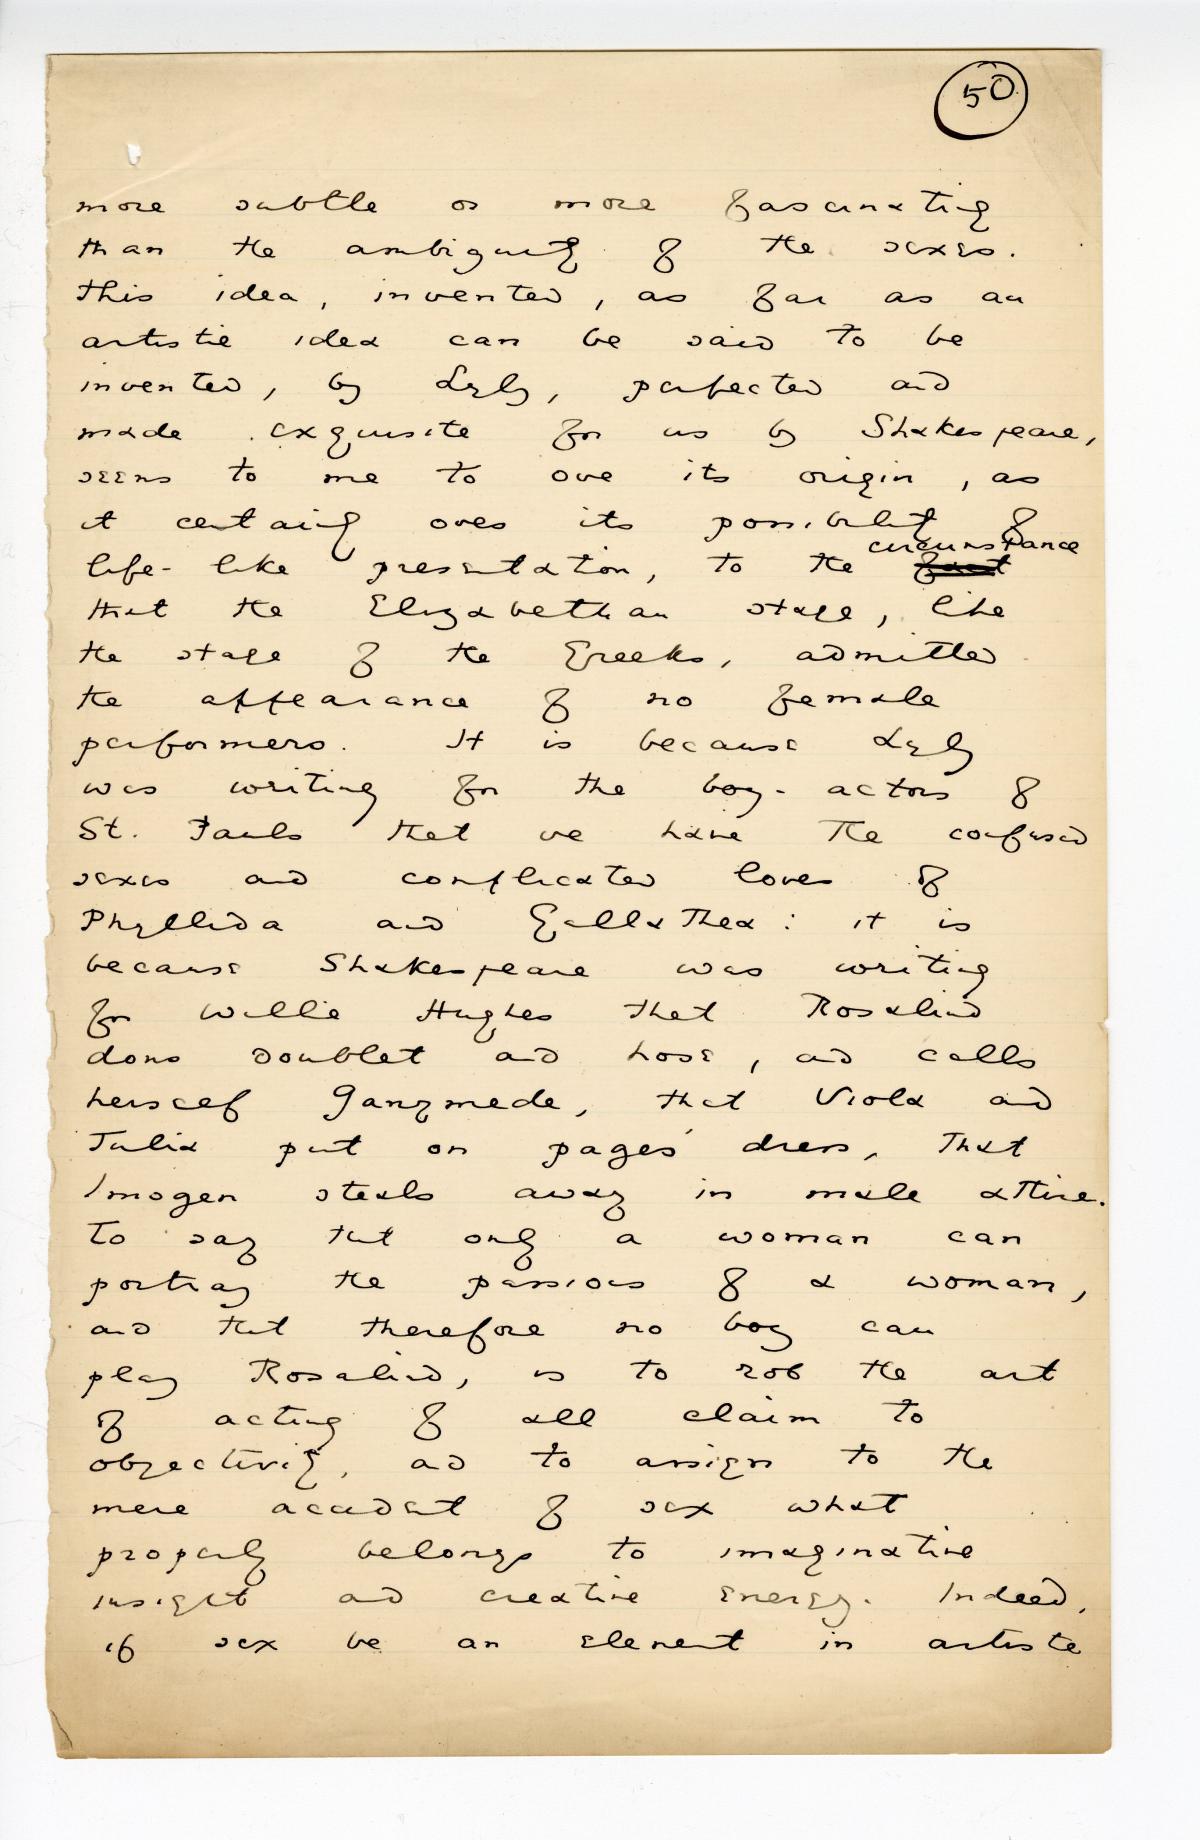 50
more subtle or more fascinating
than the ambiguity of the sexes.
This idea, invented, as far as an
artistic idea can be said to be
invented, by Lyly, perfected and
made exquisite for us by Shakespeare,
seems to me to owe its origin, as
it certainly owes its possibility of
life-like presentation, to the fact circumstance
that the Elizabethan stage, like
the stage of the Greeks, admitted
the appearance of no female
performers. It is because Lyly
was writing for the boy-actors of
St. Pauls that we have the confused
sexes and complicated loves of
Phyllida and Gallathea: it is
because Shakespeare was writing
for Willie Hughes that Rosalind
dons doublet and hose, and calls
herself Ganymede, that Viola and
Julia put on pages' dress, that
Imogen steals away in male attire.
To say that only a woman can
portray the passions of a woman,
and that therefore no boy can
play Rosalind, is to rob the art
of acting of all claim to
objectivity, and to assign to the
mere accident of sex what
properly belongs to imaginative
insight and creative energy. Indeed,
if sex be an element in artistic